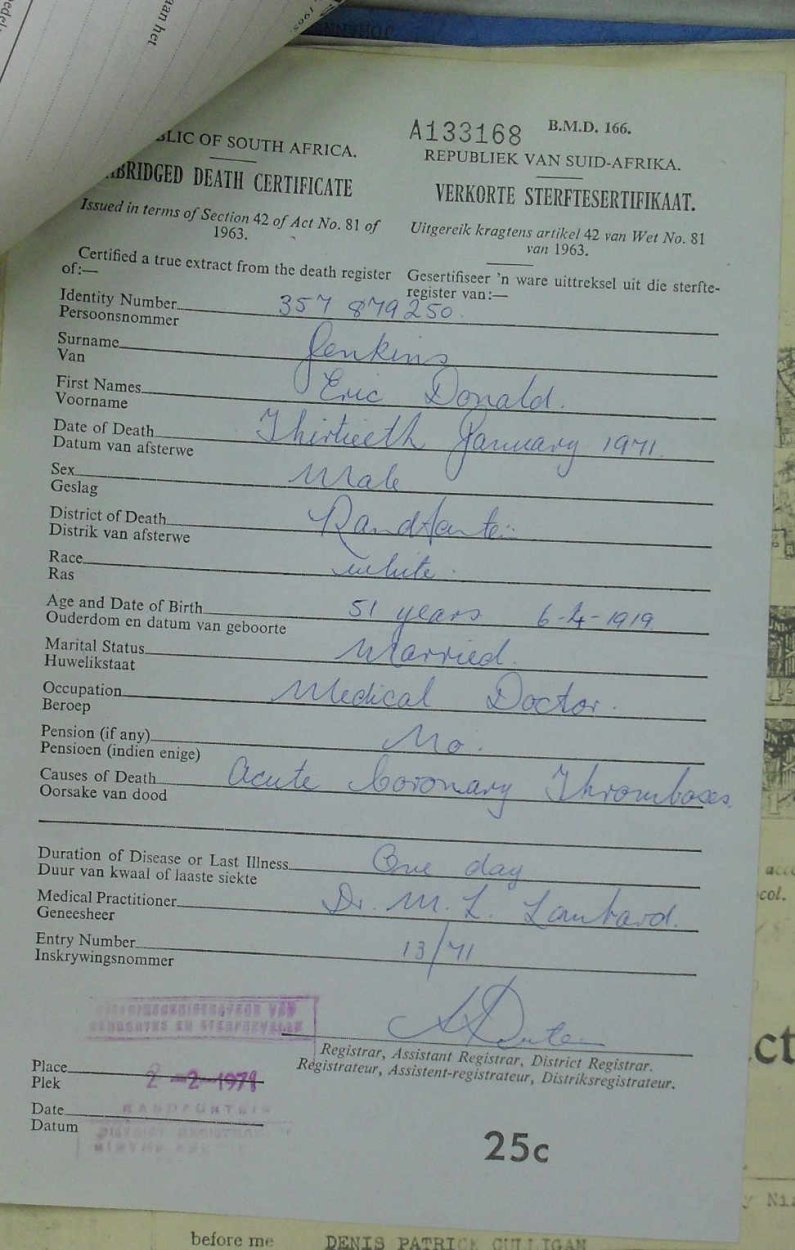 aan het
A133168 B.M.D. 166.
BLIC OF SOUTH AFRICA.
REPUBLIEK VAN SUID-AFRIKA.
BRIDGED DEATH CERTIFICATE
VERKORTE STERFTESERTIFIKAAT.
Issued in terms of Section 42 of Act No. 81 of
1963.
Uitgereik kragtens artikel 42 van Wet No. 81
van 1963.
Certified a true extract from the death register
of:—
Gesertifiseer 'n ware uittreksel uit die sterfte-
register van:—
Identity Number 357 879 250.
Persoonsnommer
Surname Jenkins
Van
First Names Eric Donald.
Voorname
Date of Death Thirtieth January 1971.
Datum van afsterwe
Sex Male
Geslag
District of Death
Distrik van afsterwe
Race white.
Ras
Age and Date of Birth 51 years 6-4-1919
Ouderdom en datum van geboorte
Marital Status Married.
Huwelikstaat
Occupation Medical Doctor.
Beroep
Pension (if any) No.
Pensioen (indien enige)
Causes of Death Acute Coronary Thromboses
Oorsake van dood
Duration of Disease or Last Illness One day
Duur van kwaal of laaste siekte
Medical Practitioner Dr. M. L. Lombard.
Geneesheer
Entry Number 13/71
Inskrywingsnommer
Registrar, Assistant Registrar, District Registrar.
Registrateur, Assistent-registrateur, Distriksregistrateur.
Place
Plek
2-2-1971
Date
Datum
25c
before me DENIS PATRICK CULLIGAN